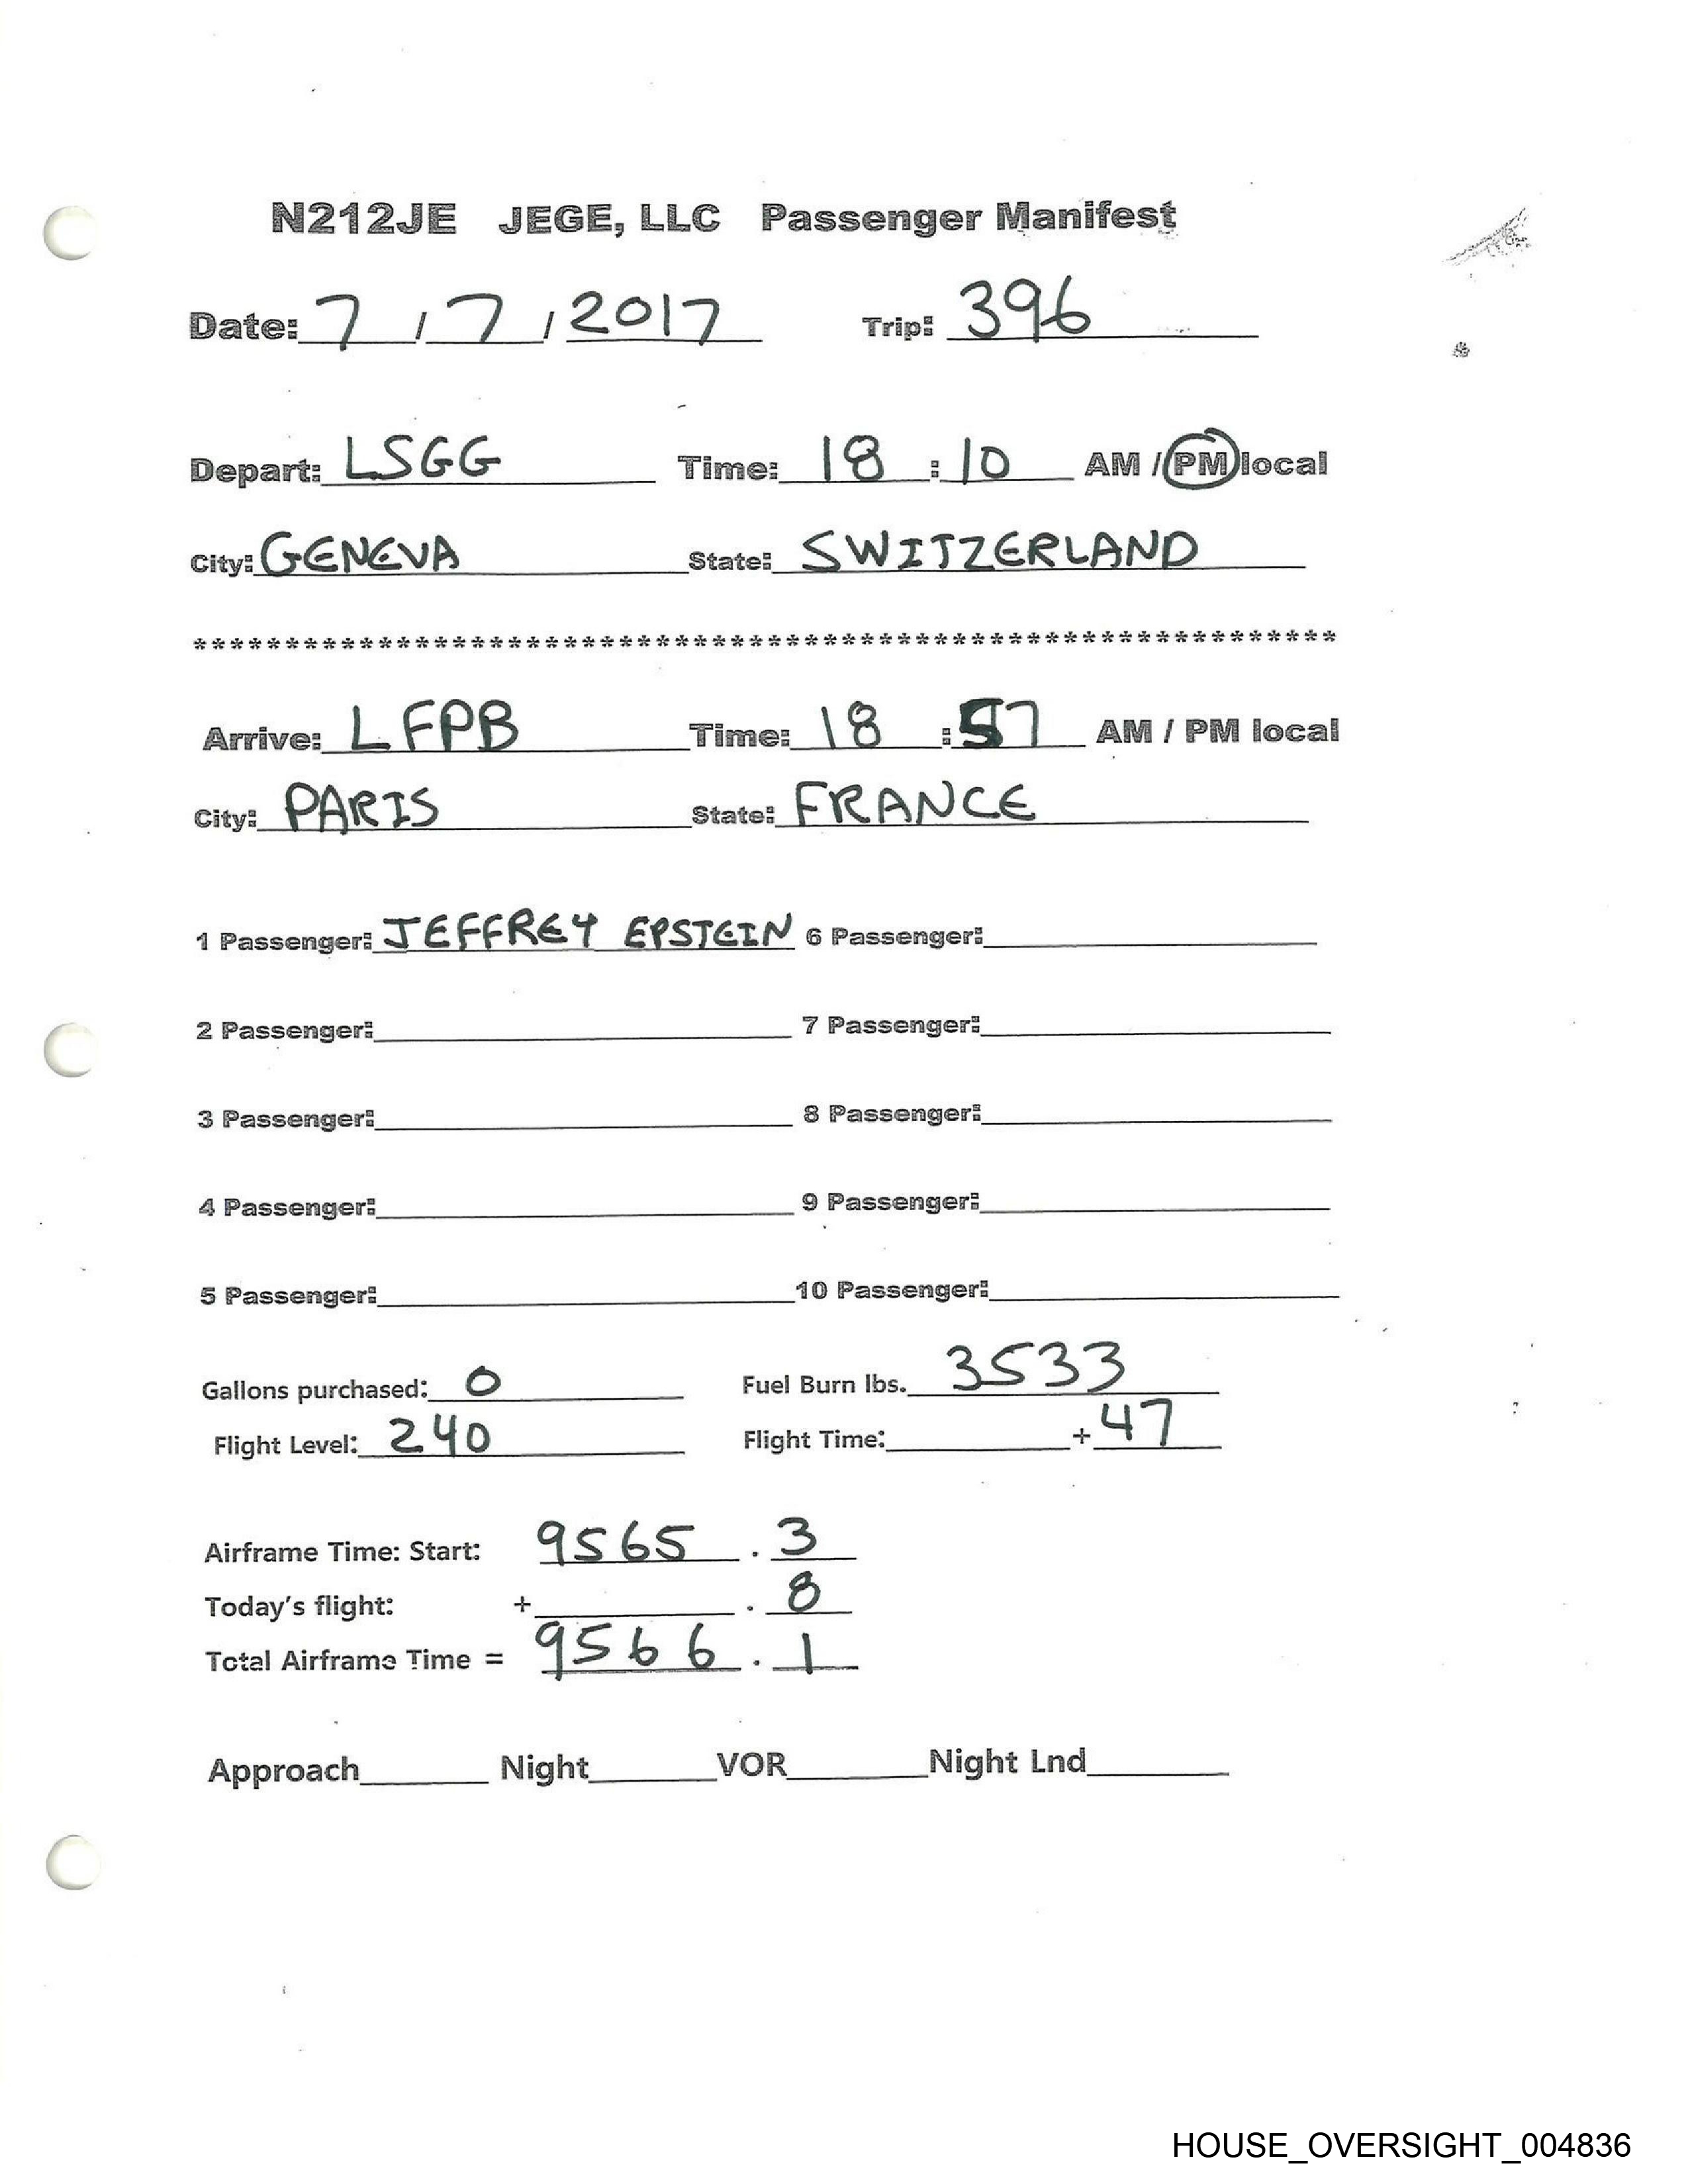 N212JE JEGE, LLC Passenger Manifest
Date: 7 / 7 / 2017 Trip: 396
Depart: LSGG Time: 18 : 10 AM / PM local
City: GENEVA State: SWITZERLAND
**************************************************************
Arrive: LFPB Time: 18 : 57 AM / PM local
City: PARIS State: FRANCE
1 Passenger: JEFFREY EPSTEIN 6 Passenger:
2 Passenger: 7 Passenger:
3 Passenger: 8 Passenger:
4 Passenger: 9 Passenger:
5 Passenger: 10 Passenger:
Gallons purchased: 0 Fuel Burn lbs. 3533
Flight Level: 240 Flight Time: + 47
Airframe Time: Start: 9565 . 3
Today's flight: + . 8
Total Airframe Time = 9566 . 1
Approach Night VOR Night Lnd
HOUSE_OVERSIGHT_004836